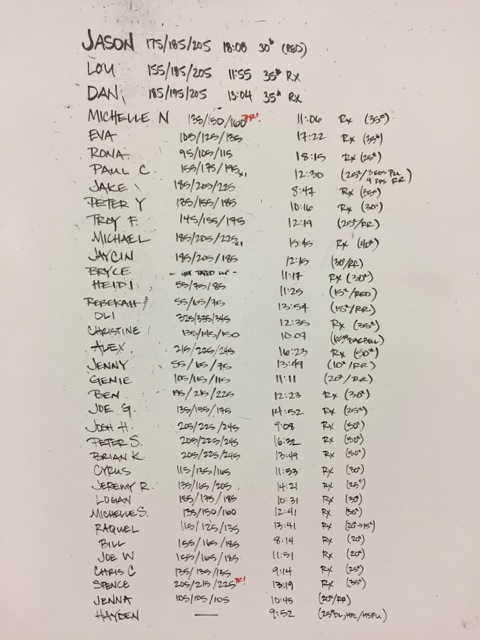 JASON 175/185/205 18:08 30# (RED)
LOU 155/185/205 11:55 35# Rx
DANI 185/195/205 13:04 35# Rx
MICHELLE N 135/150/160 PR! 11:06 Rx (35#)
EVA 105/125/135 17:22 Rx (35#)
RONA 95/105/115 18:15 Rx (25#)
PAUL C. 155/175/195x1 12:30
JAKE 185/205/225 8:47 Rx (55#)
PETER Y 135/155/185 10:16 Rx (30#)
TROY F. 145/155/175 12:19 (20#/RR)
MICHAEL 185/205/225x1 15:45 Rx (40#)
JAYCIN 185/205/185 12:15 (30#/RR)
BRYCE 11:17 Rx (30#)
HEIDI 55/75/85 11:25 (15#/RED)
REBEKAH 55/65/75 13:54 (15#/RR)
OLI 325/335/345 12:35 Rx (35#)
CHRISTINE 135/145/150 10:07
ALEX 215/225/245 16:23 Rx (50#)
JENNY 55/65/75 13:49 (10#/RR)
GENIE 105/115/115 11:11 (20#/RR)
BEN 195/215/225 12:23 Rx (30#)
JOE G. 135/155/175 14:52 Rx (25#)
JOSH H. 205/225/245 9:08 Rx (50#)
PETER S. 205/225/245 6:32 Rx (50#)
BRIAN K. 205/225/245 13:49 Rx (50#)
CYRUS 115/135/165 11:53 Rx (30#)
JEREMY R. 135/165/205 14:21 Rx (25#)
LOGAN 155/175/185 10:31 Rx (30#)
MICHELLE S. 135/150/160 12:41 Rx (30#)
RAQUEL 115/125/135 13:41 Rx (20#→15#)
BILL 155/165/185 8:14 Rx (20#)
JOE W 155/165/185 11:51 Rx (20#)
CHRIS C 135/135/135 9:14 Rx (25#)
SPENCE 205/215/225 PR! 13:19 Rx (35#)
JENNA 105/105/105 10:45 (20#/RR)
HAYDEN — 9:52